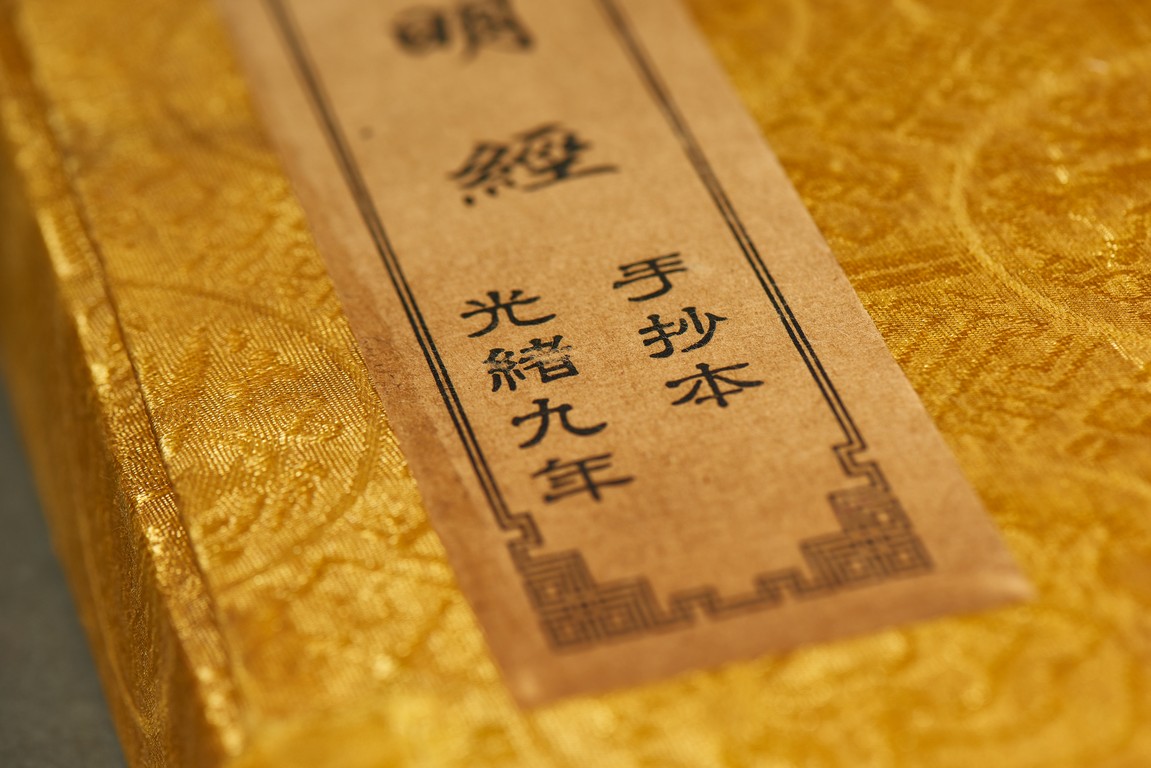 明經
手抄本
光緒九年